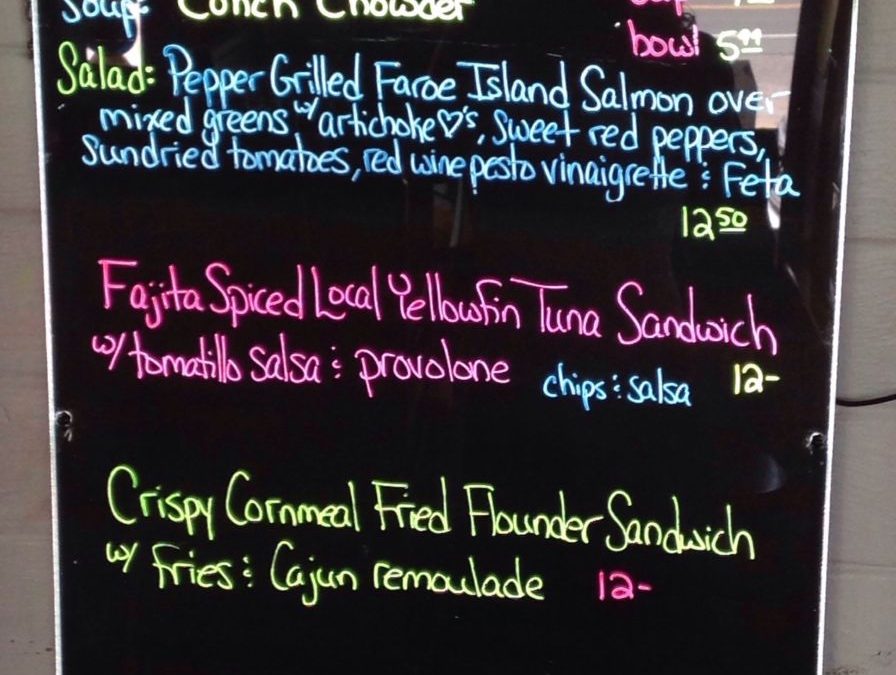 Soup: Conch Chowder cup
bowl 5.99
Salad: Pepper Grilled Faroe Island Salmon over
mixed greens w/ artichoke♡'s, sweet red peppers,
sundried tomatoes, red wine pesto vinaigrette & Feta
12.50
Fajita Spiced Local Yellowfin Tuna Sandwich
w/ tomatillo salsa & provolone chips & salsa 12-
Crispy Cornmeal Fried Flounder Sandwich
w/ fries & Cajun remoulade 12-